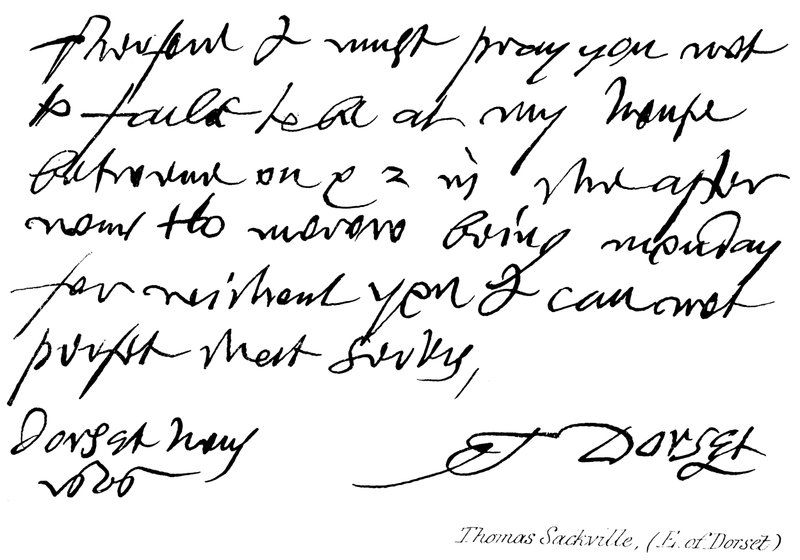 therfore I must pray you not
to faile to be at my house
betwene on & 2 in the after
none to morow being monday
for without you I can not
perfet that
Dorset hous
T Dorset
Thomas Sackville, (E. of Dorset)